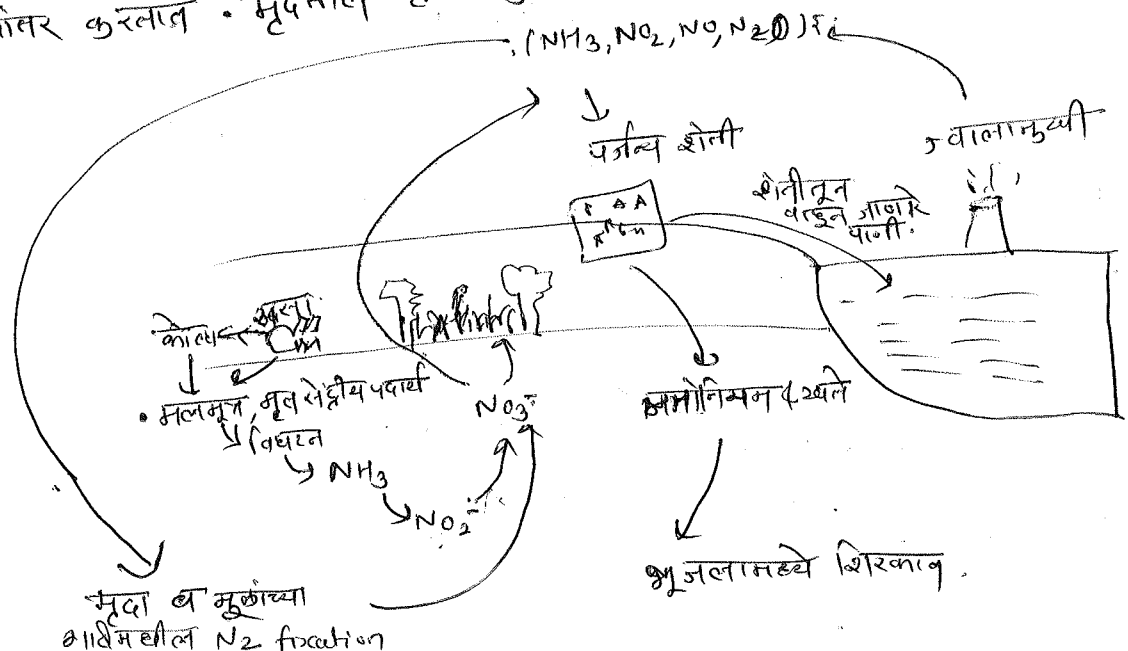 करतात. मृदेतील
(NH3, NO2, NO, N2O)
↓
पर्जन्य शेती
ज्वालामुखी
शेतीतून
वाहून जाणारे
पाणी.
कोल्हा
ससा
मलमूत्र, मृत सेंद्रीय पदार्थ
विघटन
NH3
NO2-
NO3-
अमोनियम खते
भूजलामध्ये शिरकाव.
मृदा व मूळांच्या
गाठीमधील N2 fixation